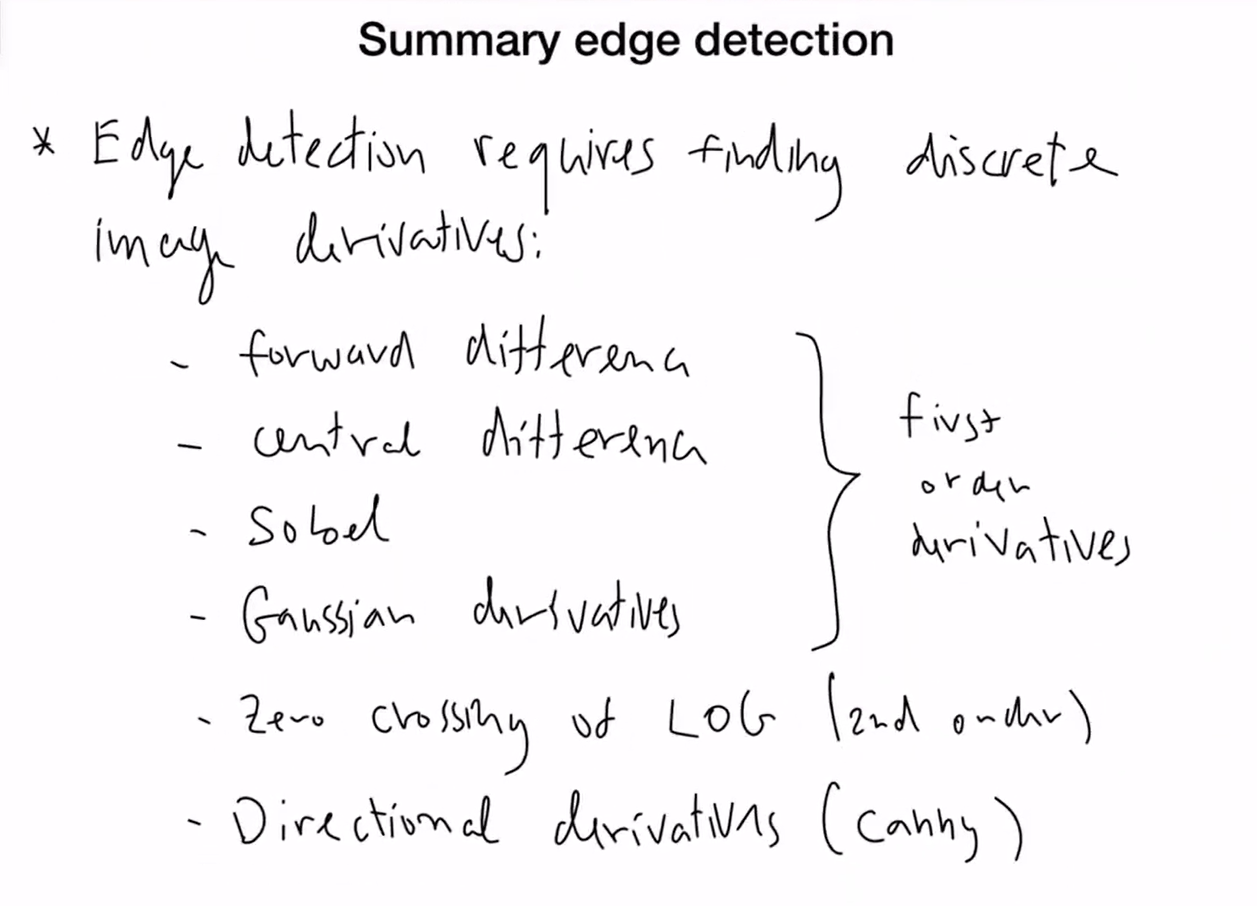 Summary edge detection
* Edge detection requires finding discrete
image derivatives:
- forward difference
- central difference
- Sobel
- Gaussian derivatives
first
order
derivatives
- Zero crossing of LOG (2nd order)
- Directional derivatives (Canny)